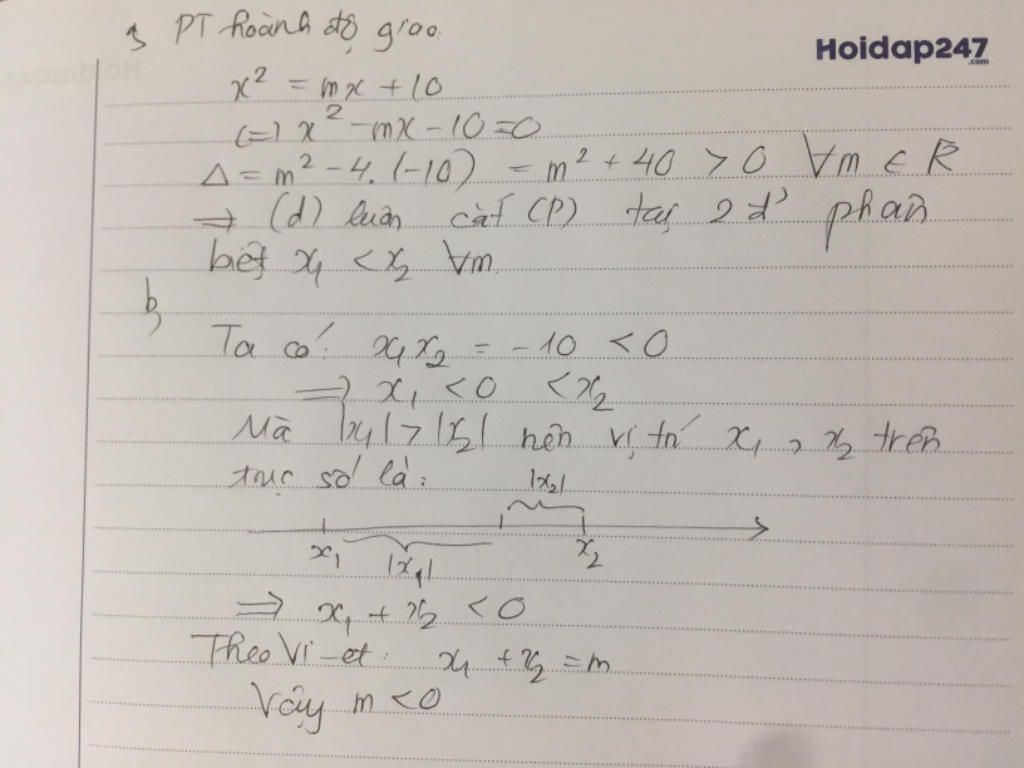 a, PT hoành độ giao.
Hoidap247
.com
x² = mx + 10
(=) x² - mx - 10 = 0
Δ = m² - 4. (-10) = m² + 40 > 0 ∀m ∈ R
⇒ (d) luôn cắt (P) tại 2 đ' phân
biệt x₁ < x₂ ∀m
b,
Ta có: x₁x₂ = -10 < 0
⇒ x₁ < 0 < x₂
Mà |x₁| > |x₂| nên vị trí x₁, x₂ trên
trục số là:
|x₂|
x₁ x₂
|x₁|
⇒ x₁ + x₂ < 0
Theo Vi-et: x₁ + x₂ = m
Vậy m < 0